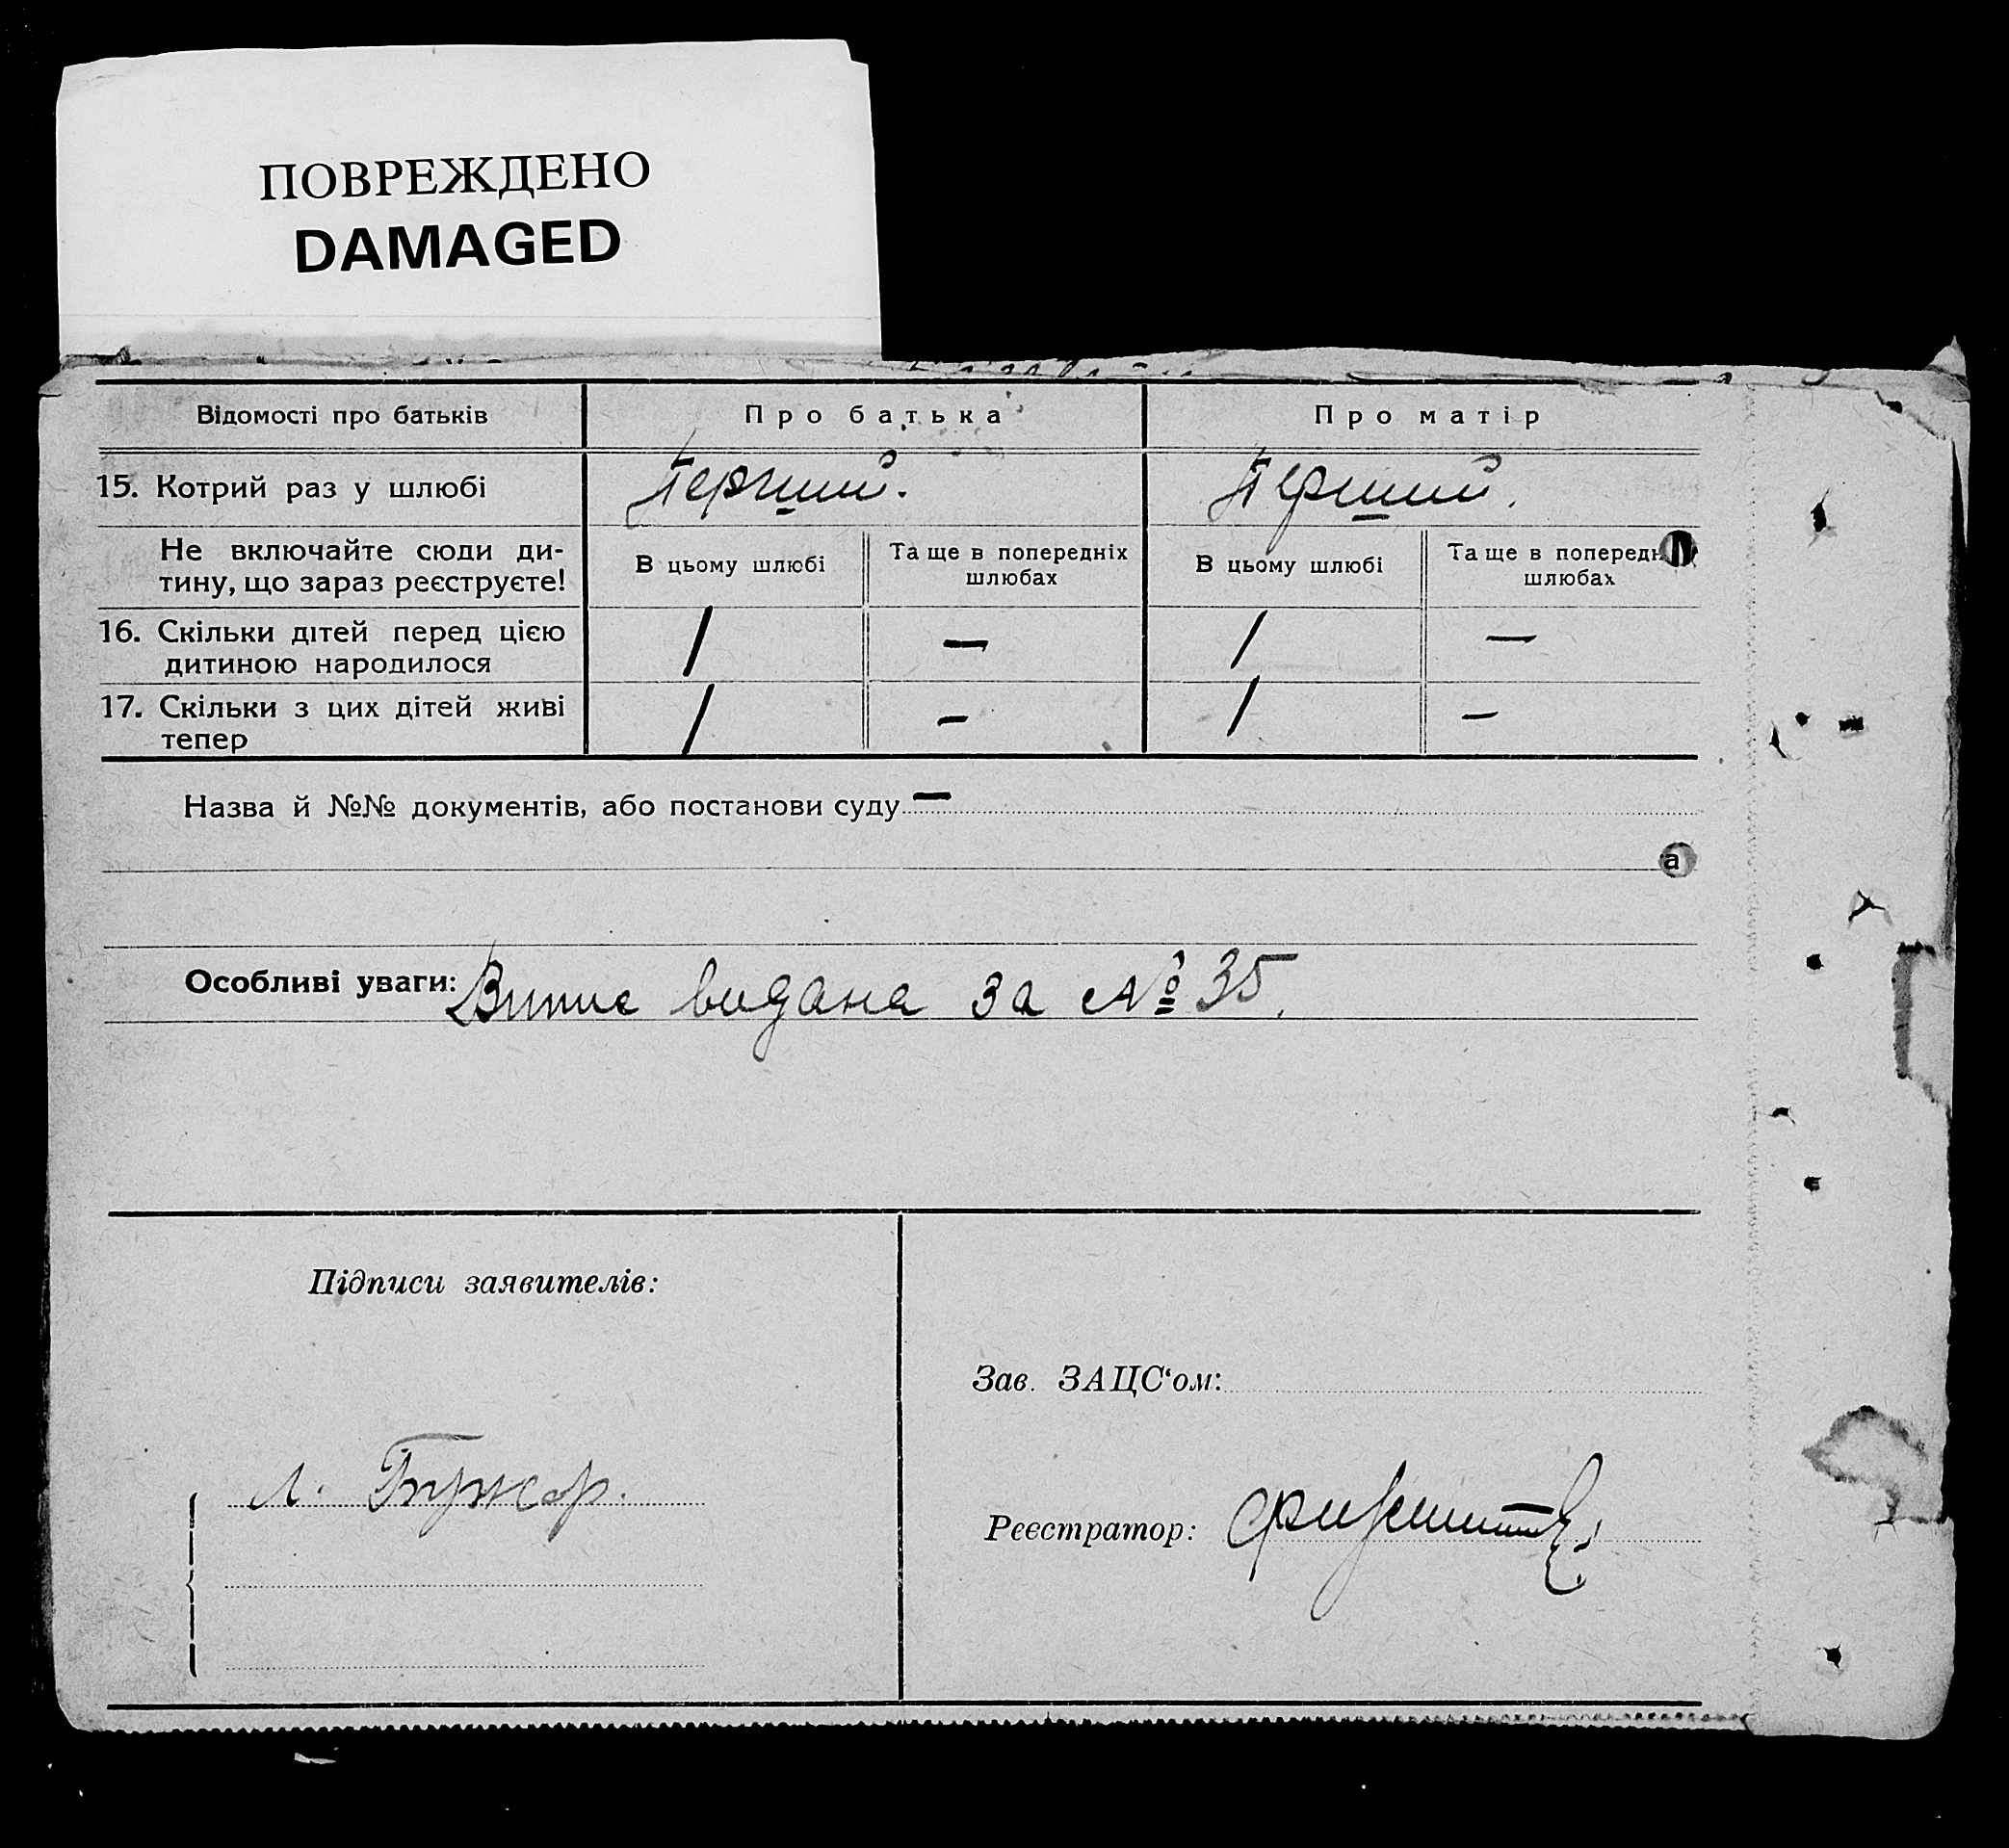 ПОВРЕЖДЕНО
DAMAGED
Відомості про батьків
Про батька
Про матір
15. Котрий раз у шлюбі
Перший.
Перший.
Не включайте сюди ди-
тину, що зараз реєструєте!
В цьому шлюбі
Та ще в попередніх
шлюбах
В цьому шлюбі
Та ще в попередн
шлюбах
16. Скільки дітей перед цією
дитиною народилося
1
—
1
—
17. Скільки з цих дітей живі
тепер
1
—
1
—
Назва й №№ документів, або постанови суду —
а
Особливі уваги: Випис видана за № 35.
Підписи заявителів:
Зав. ЗАЦС‘ом:
Л. Бужор.
Реєстратор: